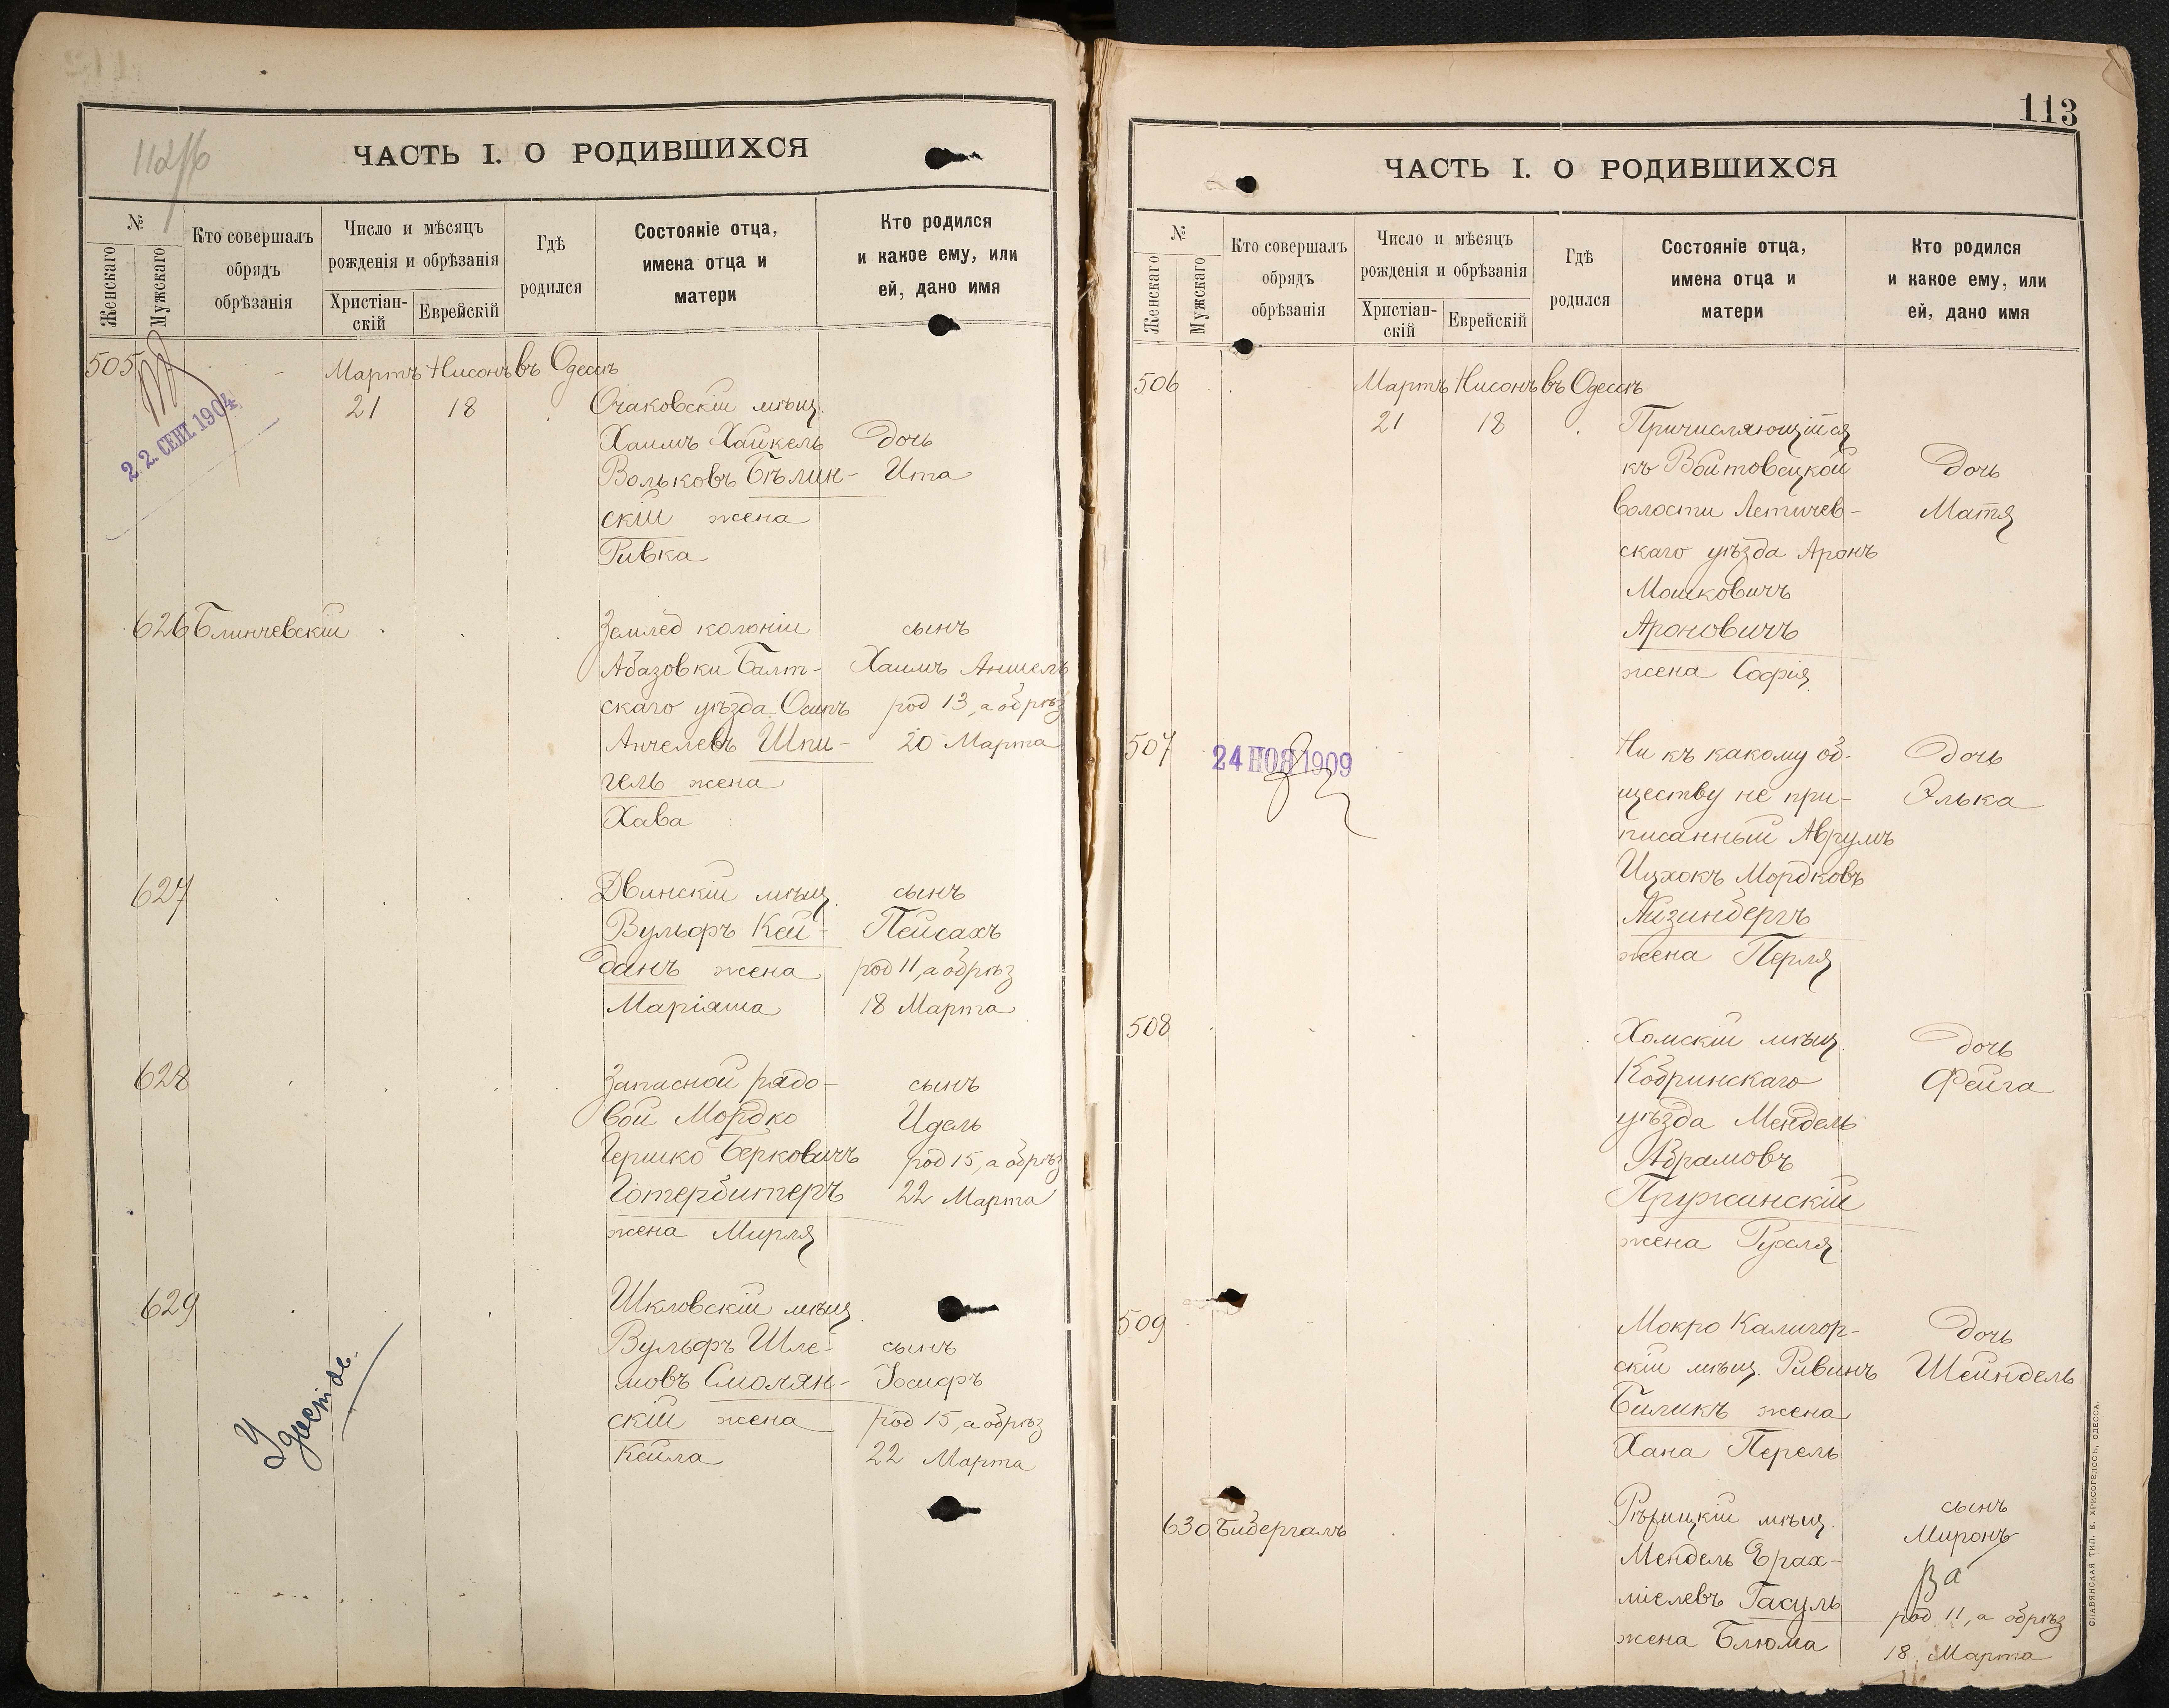 112/б
ЧАСТЬ I. О РОДИВШИХСЯ
№
Женскаго
Мужскаго
Кто совершалъ
обрядъ
обрѣзанія
Число и мѣсяцъ
рожденія и обрѣзанія
Христіан-
скій
Еврейскій
Гдѣ
родился
Состояніе отца,
имена отца и
матери
Кто родился
и какое ему, или
ей, дано имя
505 Мартъ Нисонъ въ Одессѣ
22. СЕНТ. 1904
21 18 Очаковскій мѣщ.
Хаимъ Хайкель Дочь
Вольковъ Бѣлин- Ита
скій жена
Ривка
626 Блинчевскій Землед колоніи сынъ
Абазовки Балт- Хаимъ Аншель
скаго уѣзда Осипъ род 13, а обрѣз
Анчелевъ Шпи- 20 Марта
гель жена
Хава
627 Двинскій мѣщ. сынъ
Вульфъ Кей- Пейсахъ
данъ жена род 11, а обрѣз
Маріяша 18 Марта
628 Запасной рядо- сынъ
вой Мордко Идель
Гершко Берковичъ род 15, а обрѣз
Готербитеръ 22 Марта
жена Мирля
629 Шкловскій мѣщ
Вульфъ Шле- сынъ
мовъ Смолян- Іосифъ
скій жена род 15, а обрѣз
Кейла 22 Марта
113
ЧАСТЬ I. О РОДИВШИХСЯ
№
Женскаго
Мужскаго
Кто совершалъ
обрядъ
обрѣзанія
Число и мѣсяцъ
рожденія и обрѣзанія
Христіан-
скій
Еврейскій
Гдѣ
родился
Состояніе отца,
имена отца и
матери
Кто родился
и какое ему, или
ей, дано имя
506 Мартъ Нисонъ въ Одессѣ
21 18 Причисляющійся
къ Войтовецкой Дочь
волости Летичев- Матя
скаго уѣзда Аронъ
Мошковичъ
Ароновичъ
жена Софія
507 24 НОЯ 1909 Ни къ какому об- Дочь
ществу не при- Элька
писанный Аврумъ
Ицхокъ Мордковъ
Айзинбергъ
жена Перля
508 Хомскій мѣщ. Дочь
Кобринскаго Фейга
уѣзда Мендель
Абрамовъ
Пружанскій
жена Рухля
509 Мокро Калигор- Дочь
скій мѣщ. Рувинъ Шейндель
Биликъ жена
Хана Перель
630 Бидергалъ Рѣчицкій мѣщ. сынъ
Миронъ
Мендель Ерах-
міелевъ Гасуль род 11, а обрѣз
жена Блюма 18 Марта
СЛАВЯНСКАЯ ТИП. Е. ХРИСОГЕЛОСЪ, ОДЕССА.